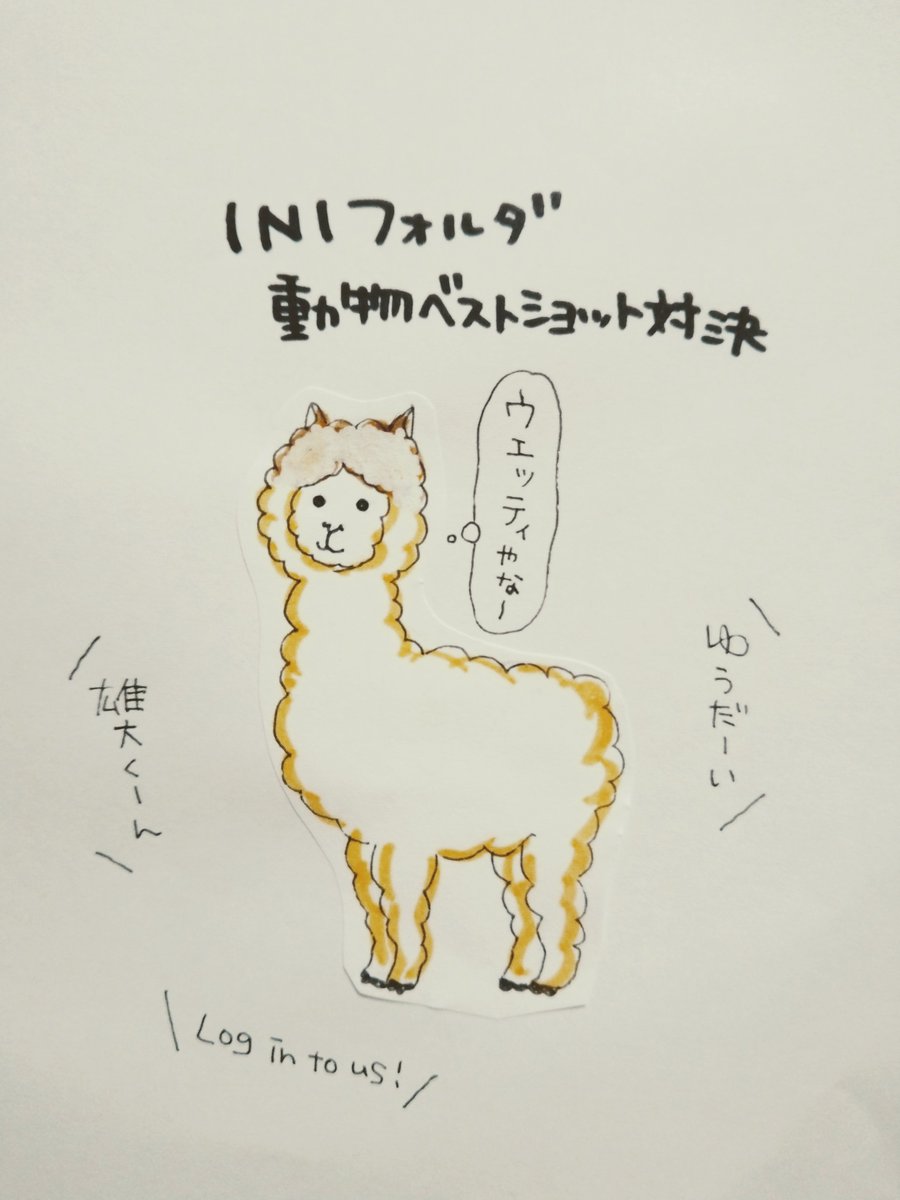 INIフォルダ
動物ベストショット対決
ウエッティやな〜
ゆうだーい
雄大くーん
Log in to us!